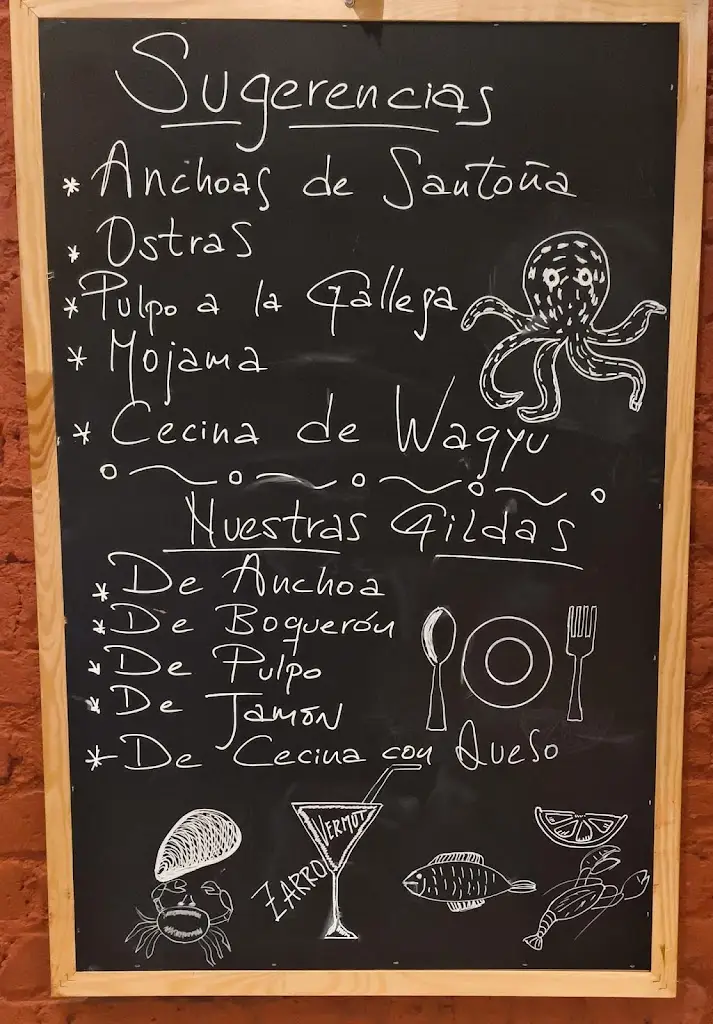 Sugerencias
* Anchoas de Santoña
* Ostras
* Pulpo a la Gallega
* Mojama
* Cecina de Wagyu
Nuestras Gildas
* De Anchoa
* De Boquerón
* De Pulpo
* De Jamón
* De Cecina con Queso
VERMUT
ZARRO